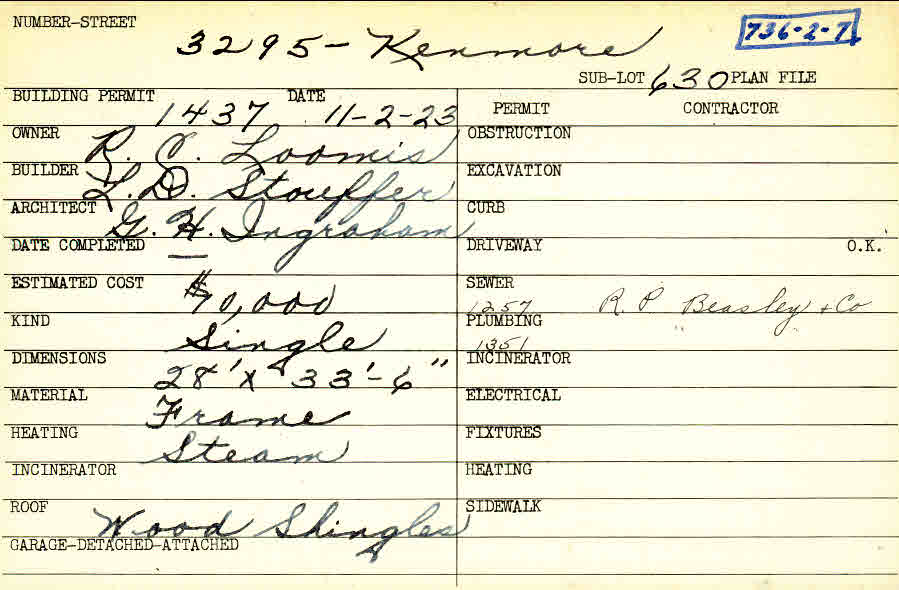 NUMBER-STREET
3295 - Kenmore
736-2-7
SUB-LOT 630 PLAN FILE
BUILDING PERMIT 1437 DATE 11-2-23
PERMIT CONTRACTOR
OWNER R. C. Loomis
OBSTRUCTION
BUILDER L. D. Stouffer
EXCAVATION
ARCHITECT G. H. Ingraham
CURB
DATE COMPLETED —
DRIVEWAY O.K.
ESTIMATED COST $10,000
SEWER 1257 R. P. Beasley + Co
KIND Single
PLUMBING 1351
DIMENSIONS 28' x 33'-6"
INCINERATOR
MATERIAL Frame
ELECTRICAL
HEATING Steam
FIXTURES
INCINERATOR
HEATING
ROOF Wood Shingles
SIDEWALK
GARAGE-DETACHED-ATTACHED